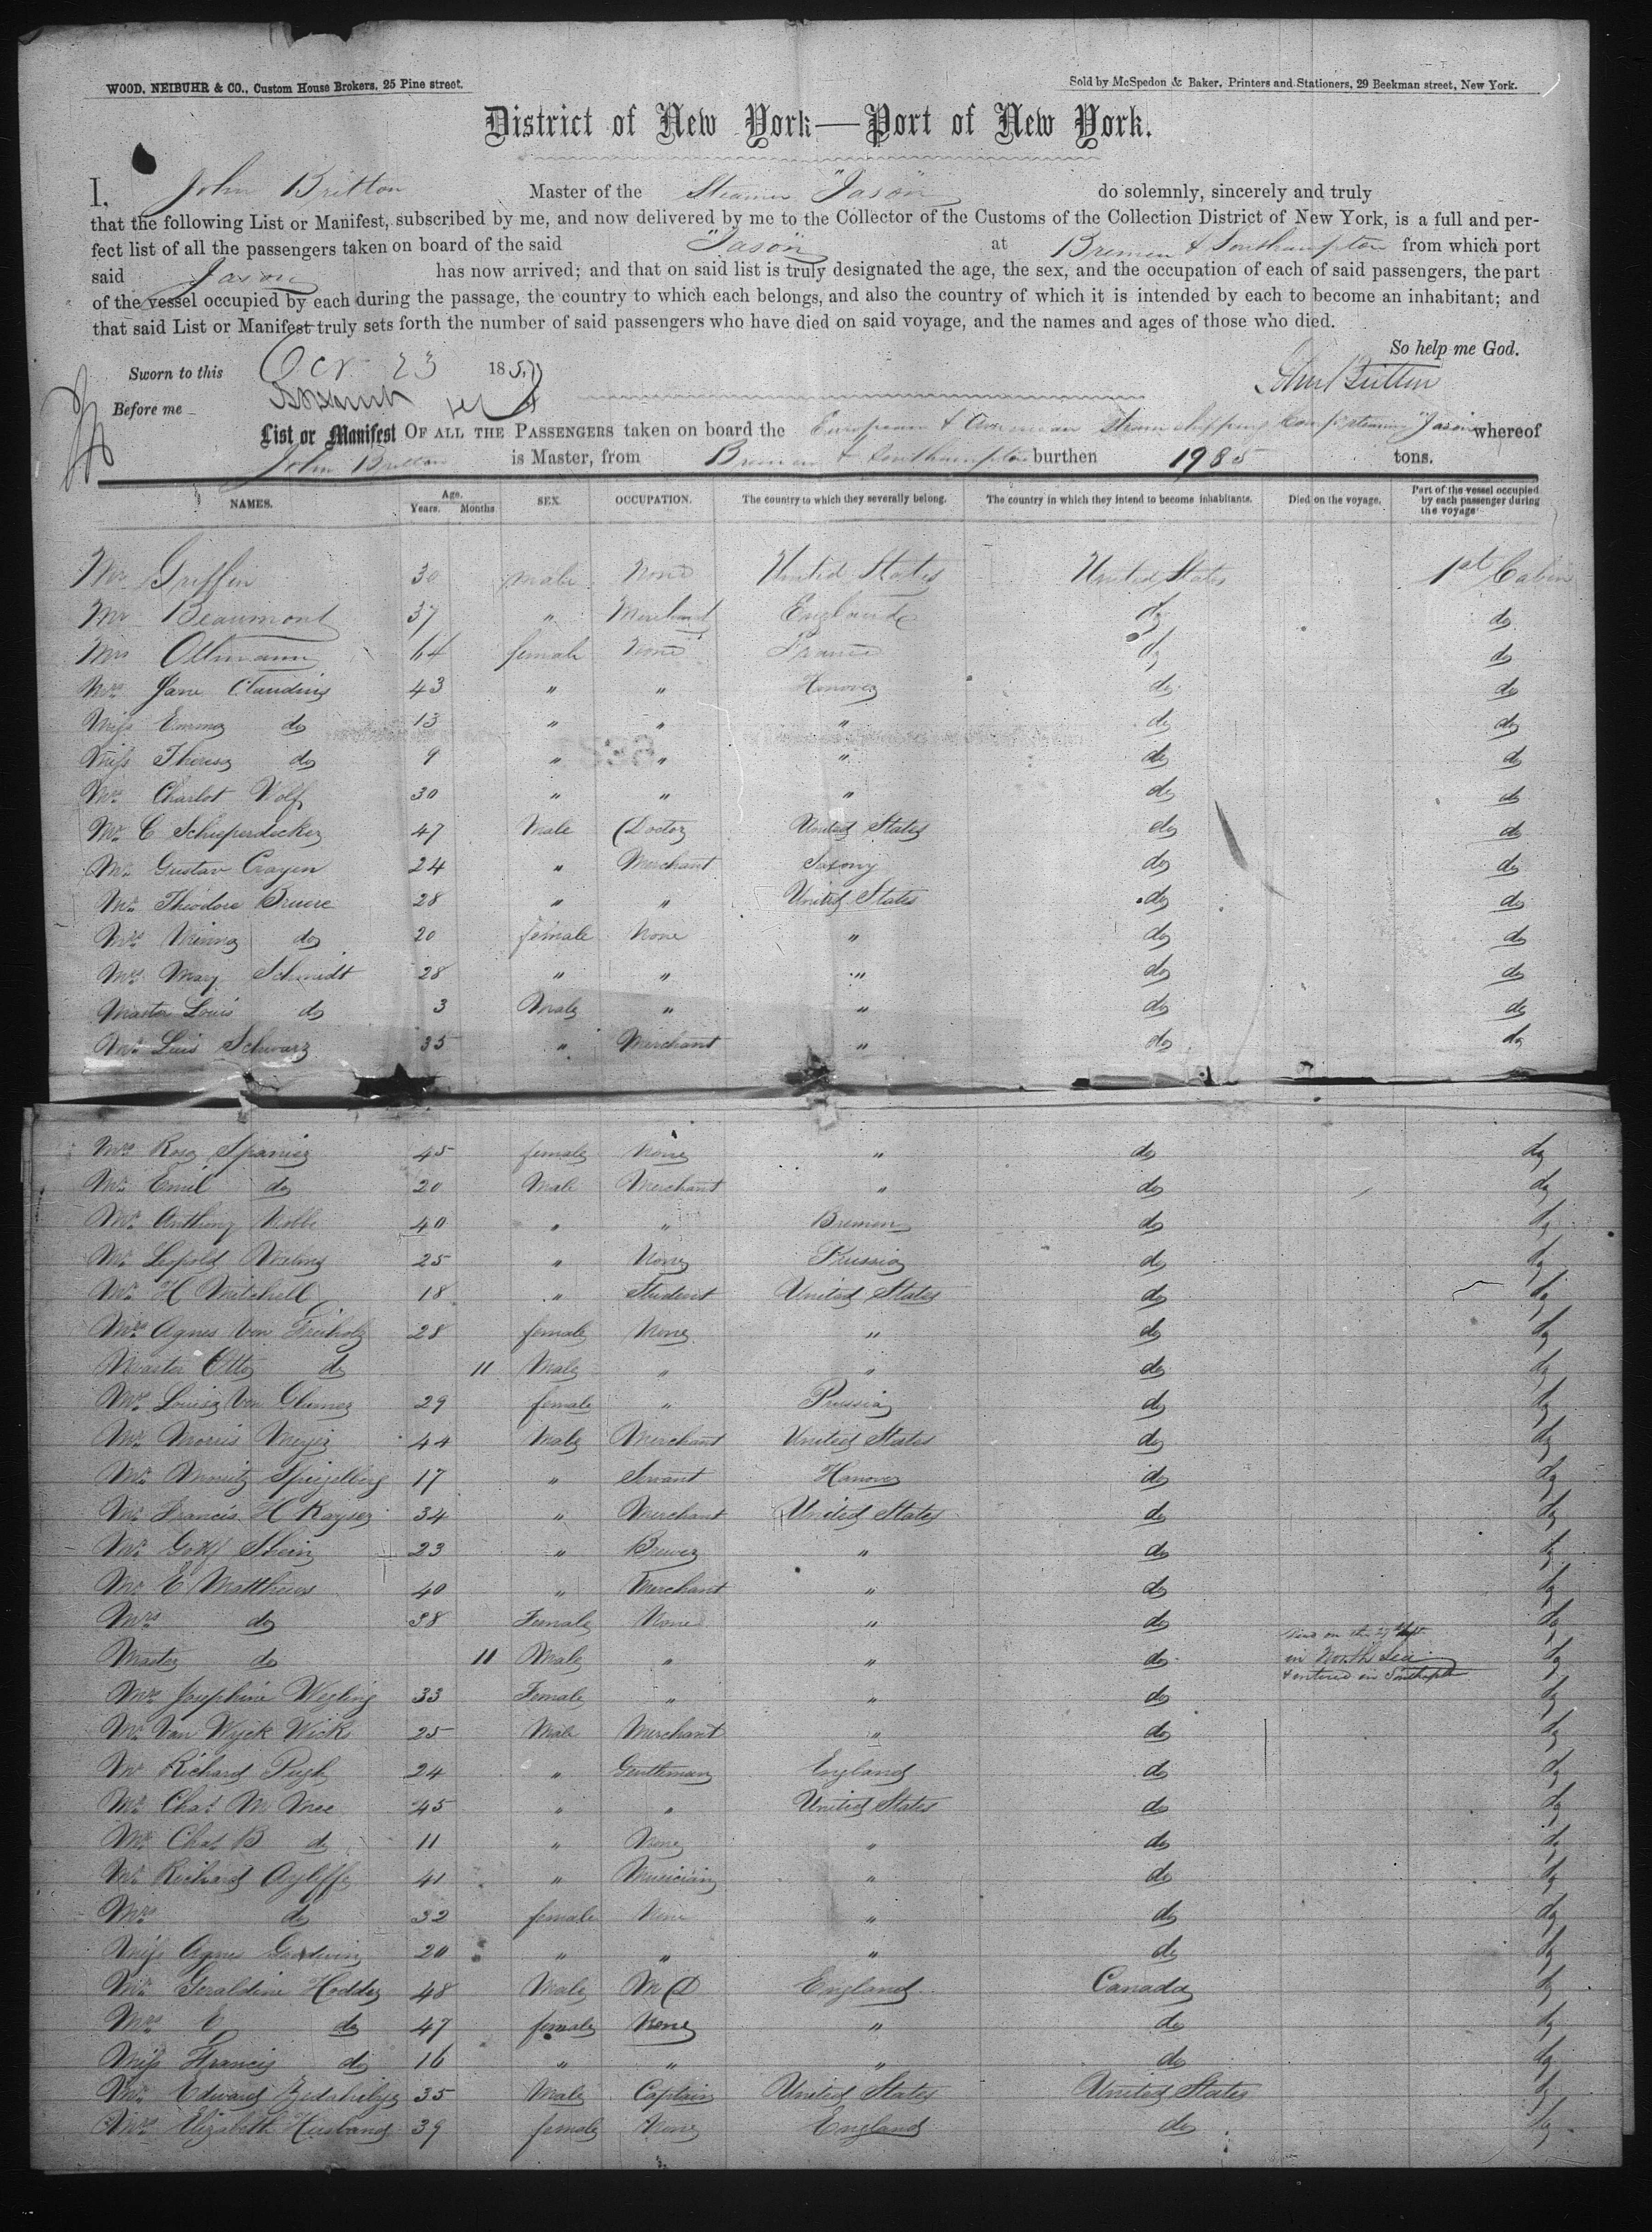 WOOD, NEIBUHR & CO., Custom House Brokers, 25 Pine street.
Sold by McSpedon & Baker, Printers and Stationers, 29 Beekman street, New York.
District of New York—Port of New York.
I, John Britton Master of the Steamer "Jason" do solemnly, sincerely and truly
that the following List or Manifest, subscribed by me, and now delivered by me to the Collector of the Customs of the Collection District of New York, is a full and per-
fect list of all the passengers taken on board of the said "Jason" at Bremen & Southampton from which port
said Jason has now arrived; and that on said list is truly designated the age, the sex, and the occupation of each of said passengers, the part
of the vessel occupied by each during the passage, the country to which each belongs, and also the country of which it is intended by each to become an inhabitant; and
that said List or Manifest truly sets forth the number of said passengers who have died on said voyage, and the names and ages of those who died.
So help me God.
Sworn to this Oct 23 1857 John Britton
Before me
List or Manifest OF ALL THE PASSENGERS taken on board the European & American Steam Shipping Comp steamer "Jason" whereof
John Britton is Master, from Bremen & Southampton burthen 1985 tons.
NAMES. Age. Years. Months. SEX. OCCUPATION. The country to which they severally belong. The country in which they intend to become inhabitants. Died on the voyage. Part of the vessel occupied by each passenger during the voyage
Mr Griffin 30 male None United States United States 1st Cabin
Mr Beaumont 37 " Merchant England do do
Mrs Oltmann 64 female None France do do
Mrs Jane Claudius 43 " " Hanover do do
Miss Emma do 13 " " " do do
Miss Theresa do 9 " " " do do
Mrs Charlot Wolf 30 " " " do do
Mr C Schieperdecker 47 Male Doctor United States do do
Mr Gustav Crayen 24 " Merchant Saxony do do
Mr Theodore Bruere 28 " " United States do do
Mrs Minna do 20 female None " do do
Mrs Mary Schmidt 28 " " " do do
Master Louis do 3 Male " " do do
Mr Luis Schwarz 35 " Merchant " do do
Mrs Rosa Spanier 45 female None " do do
Mr Emil do 20 Male Merchant " do do
Mr Anthony Nobbe 40 " " Bremen do do
Mr Lepold 25 " None Prussia do do
Mr H Mitchell 18 " Student United States do do
Mrs Agnes Von 28 female None " do do
Master Otto do 11 Male " " do do
Mrs Louisa Von Glumer 29 female " Prussia do do
Mr Morris Meyer 44 Male Merchant United States do do
Mr Moritz Spiegelberg 17 " Servant Hanover do do
Mr Francis H Kayser 34 " Merchant United States do do
Mr Gottf Stein 23 " Brewer " do do
Mr E Matthews 40 " Merchant " do do
Mrs do 38 Female None " do do
Died on the 27 Sept
Master do 11 Male " " do in North Sea do
& entered in Southapt
Mrs Josephine Wegling 33 Female " " do do
Mr Van Wyck Wicks 25 Male Merchant " do do
Mr Richard Pugh 24 " Gentleman England do do
Mr Chas M Mee 45 " " United States do do
Mr Chas B do 11 " None " do do
Mr Richard Ayliffe 41 " Musician " do do
Mrs do 32 female None " do do
Miss Agnes Goodwin 20 " " " do do
Mr Geraldine Hodder 48 Male M D England Canada do
Mrs E do 47 female None " do do
Miss Francis do 16 " " " do do
Mr Edward 35 Male Captain United States United States do
Mrs Elizabeth Husband 39 female None England do do